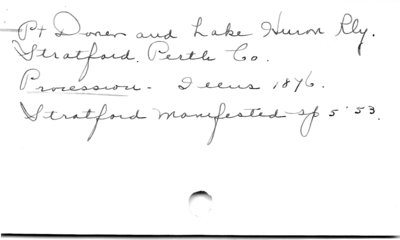 Pt Dover and Lake Huron Rly.
Stratford, Perth Co.
Procession - Illus 1876.
Stratford manifested sp 5'53.